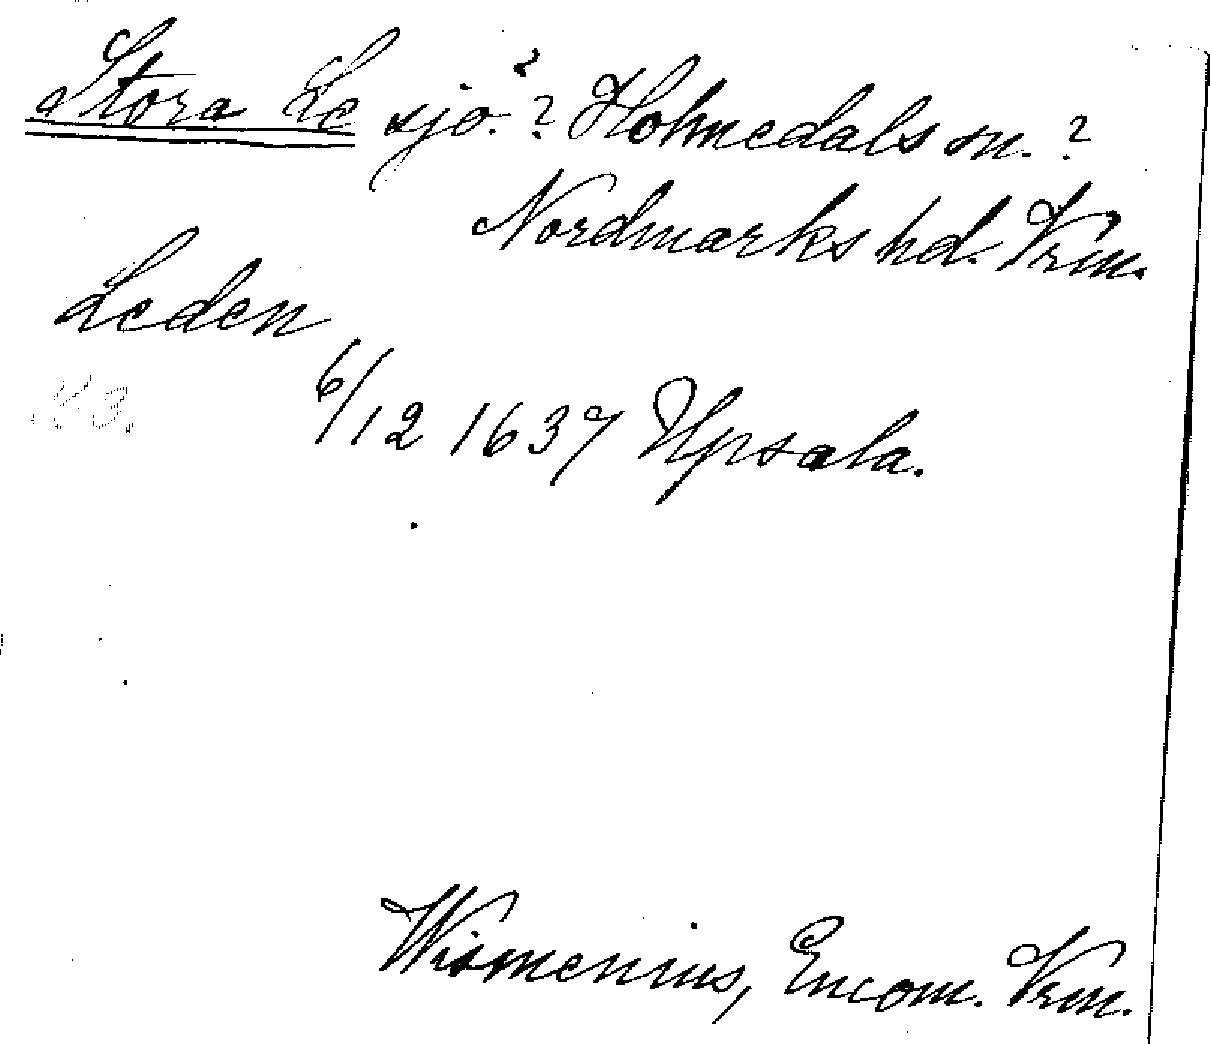 Stora Le sjö. ? Holmedals sn. ?
Nordmarks hd. Vrm.
Leden
6/12 1637 Upsala.
Wismenius, Encom. Vrm.